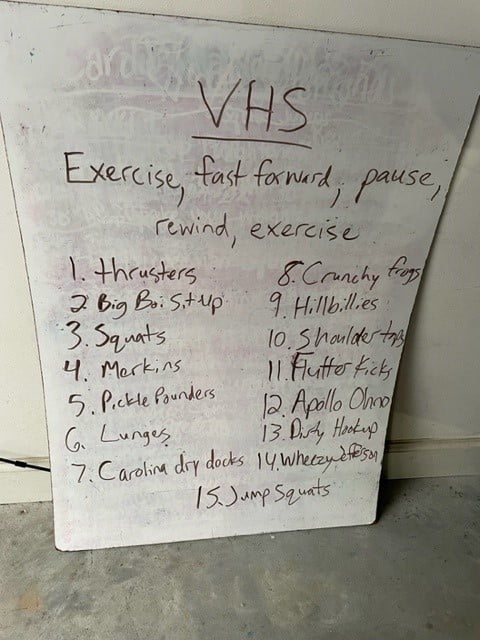 VHS
Exercise, fast forward, pause,
rewind, exercise
1. thrusters
2. Big Boi Sit up
3. Squats
4. Merkins
5. Pickle Pounders
6. Lunges
7. Carolina dry docks
8. Crunchy frogs
9. Hillbillies
10. Shoulder taps
11. Flutter Kicks
12. Apollo Ohno
13. Dirty Hookup
14. Wheezy Jefferson
15. Jump Squats